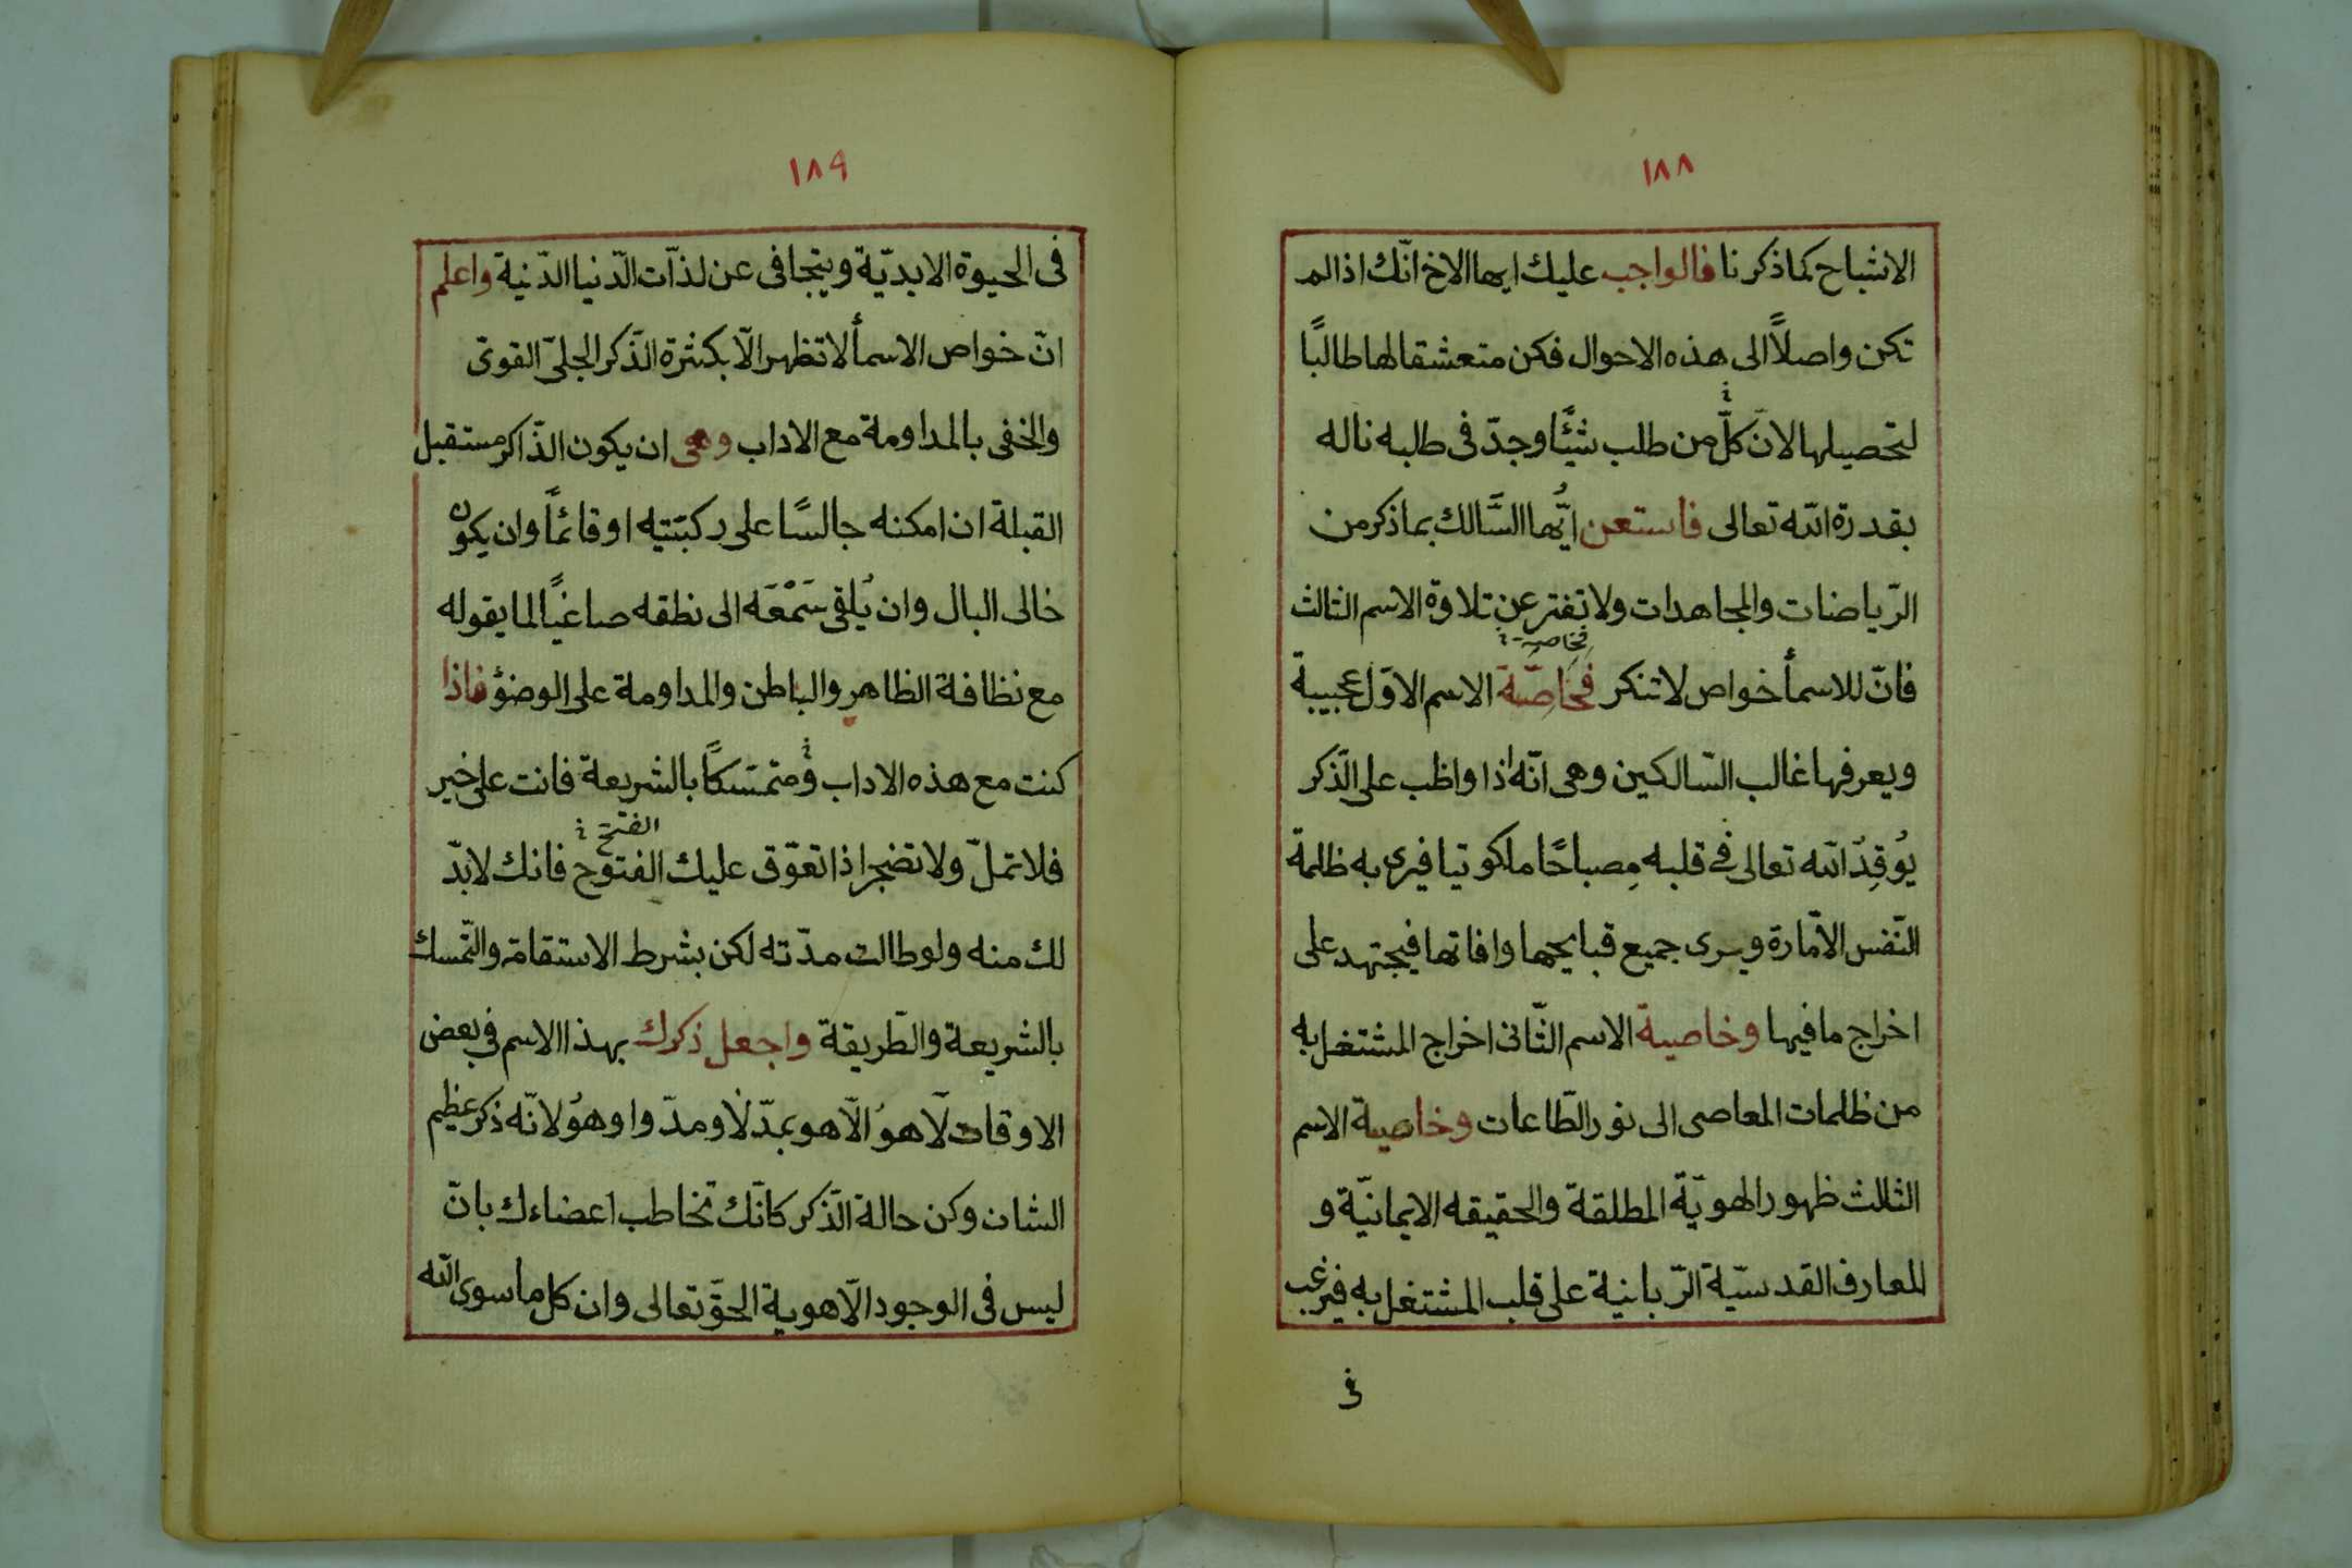 ١٨٨
الاشباح كما ذكرنا فالواجب عليك ايها الاخ انّك اذا لم
تكن واصلاً الى هذه الاحوال فكن متعشقا لها طالبًا
لتحصيلها لانّ كلّ من طلب شئًا وجدّ فى طلبه ناله
بقدرة الله تعالى فاستعن ايُّها السَّالك بما ذكر من
الرّياضات والمجاهدات ولا تفتر عن تلاوة الاسم الثالث
فخاصية
فانّ للاسمأ خواص لا تنكر فخاصّية الاسم الاوّل عجيبة
ويعرفها غالب السّالكين وهى انّه اذا واظب على الذّكر
يُوقِدُ الله تعالى فى قلبه مِصباحًا ملكوتيا فيرى به ظلمة
النّفس الامّارة ويرى جميع قبايحها وافاتها فيجتهد على
اخراج ما فيها وخاصية الاسم الثّانى اخراج المشتغل به
من ظلمات المعاصى الى نور الطّاعات وخاصية الاسم
الثالث ظهور الهويّة المطلقة والحقيقه الايمانيّة و
المعارف القدسيّة الرّبانية على قلب المشتغل به فيرغب
فى
١٨٩
فى الحيوة الابديّة ويتجافى عن لذّات الدّنيا الدّنية واعلم
انّ خواص الاسمأ لا تظهر الّا بكثرة الذّكر الجلىّ القوىّ
والخفى بالمداومة مع الاداب وهى ان يكون الذّاكر مستقبل
القبلة ان امكنه جالسًا على ركبتيه او قائمًا وان يكون
خالى البال وان يُلقى سَمْعَه الى نطقه صاغيًا لما يقوله
مع نظافة الظاهر والباطن والمداومة على الوضؤ فاذا
كنت مع هذه الاداب ومتمسّكًا بالشريعة فانت على خير
الفتح
فلا تملّ ولا تضجر اذا تعوّق عليك الفتوح فانك لا بدّ
لك منه ولو طالت مدّته لكن بشرط الاستقامة والتّمسك
بالشريعة والطّريقة واجعل ذكرك بهذا الاسم فى بعض
الاوقات لَا هوُ الّا هو بمدّ لَا ومدّ واو هوُ لانّه ذكر عظيم
الشان وكن حالة الذّكر كانّك تخاطب اعضاءك بانّ
ليس فى الوجود الّا هوية الحقّ تعالى وان كل ما سوى الله